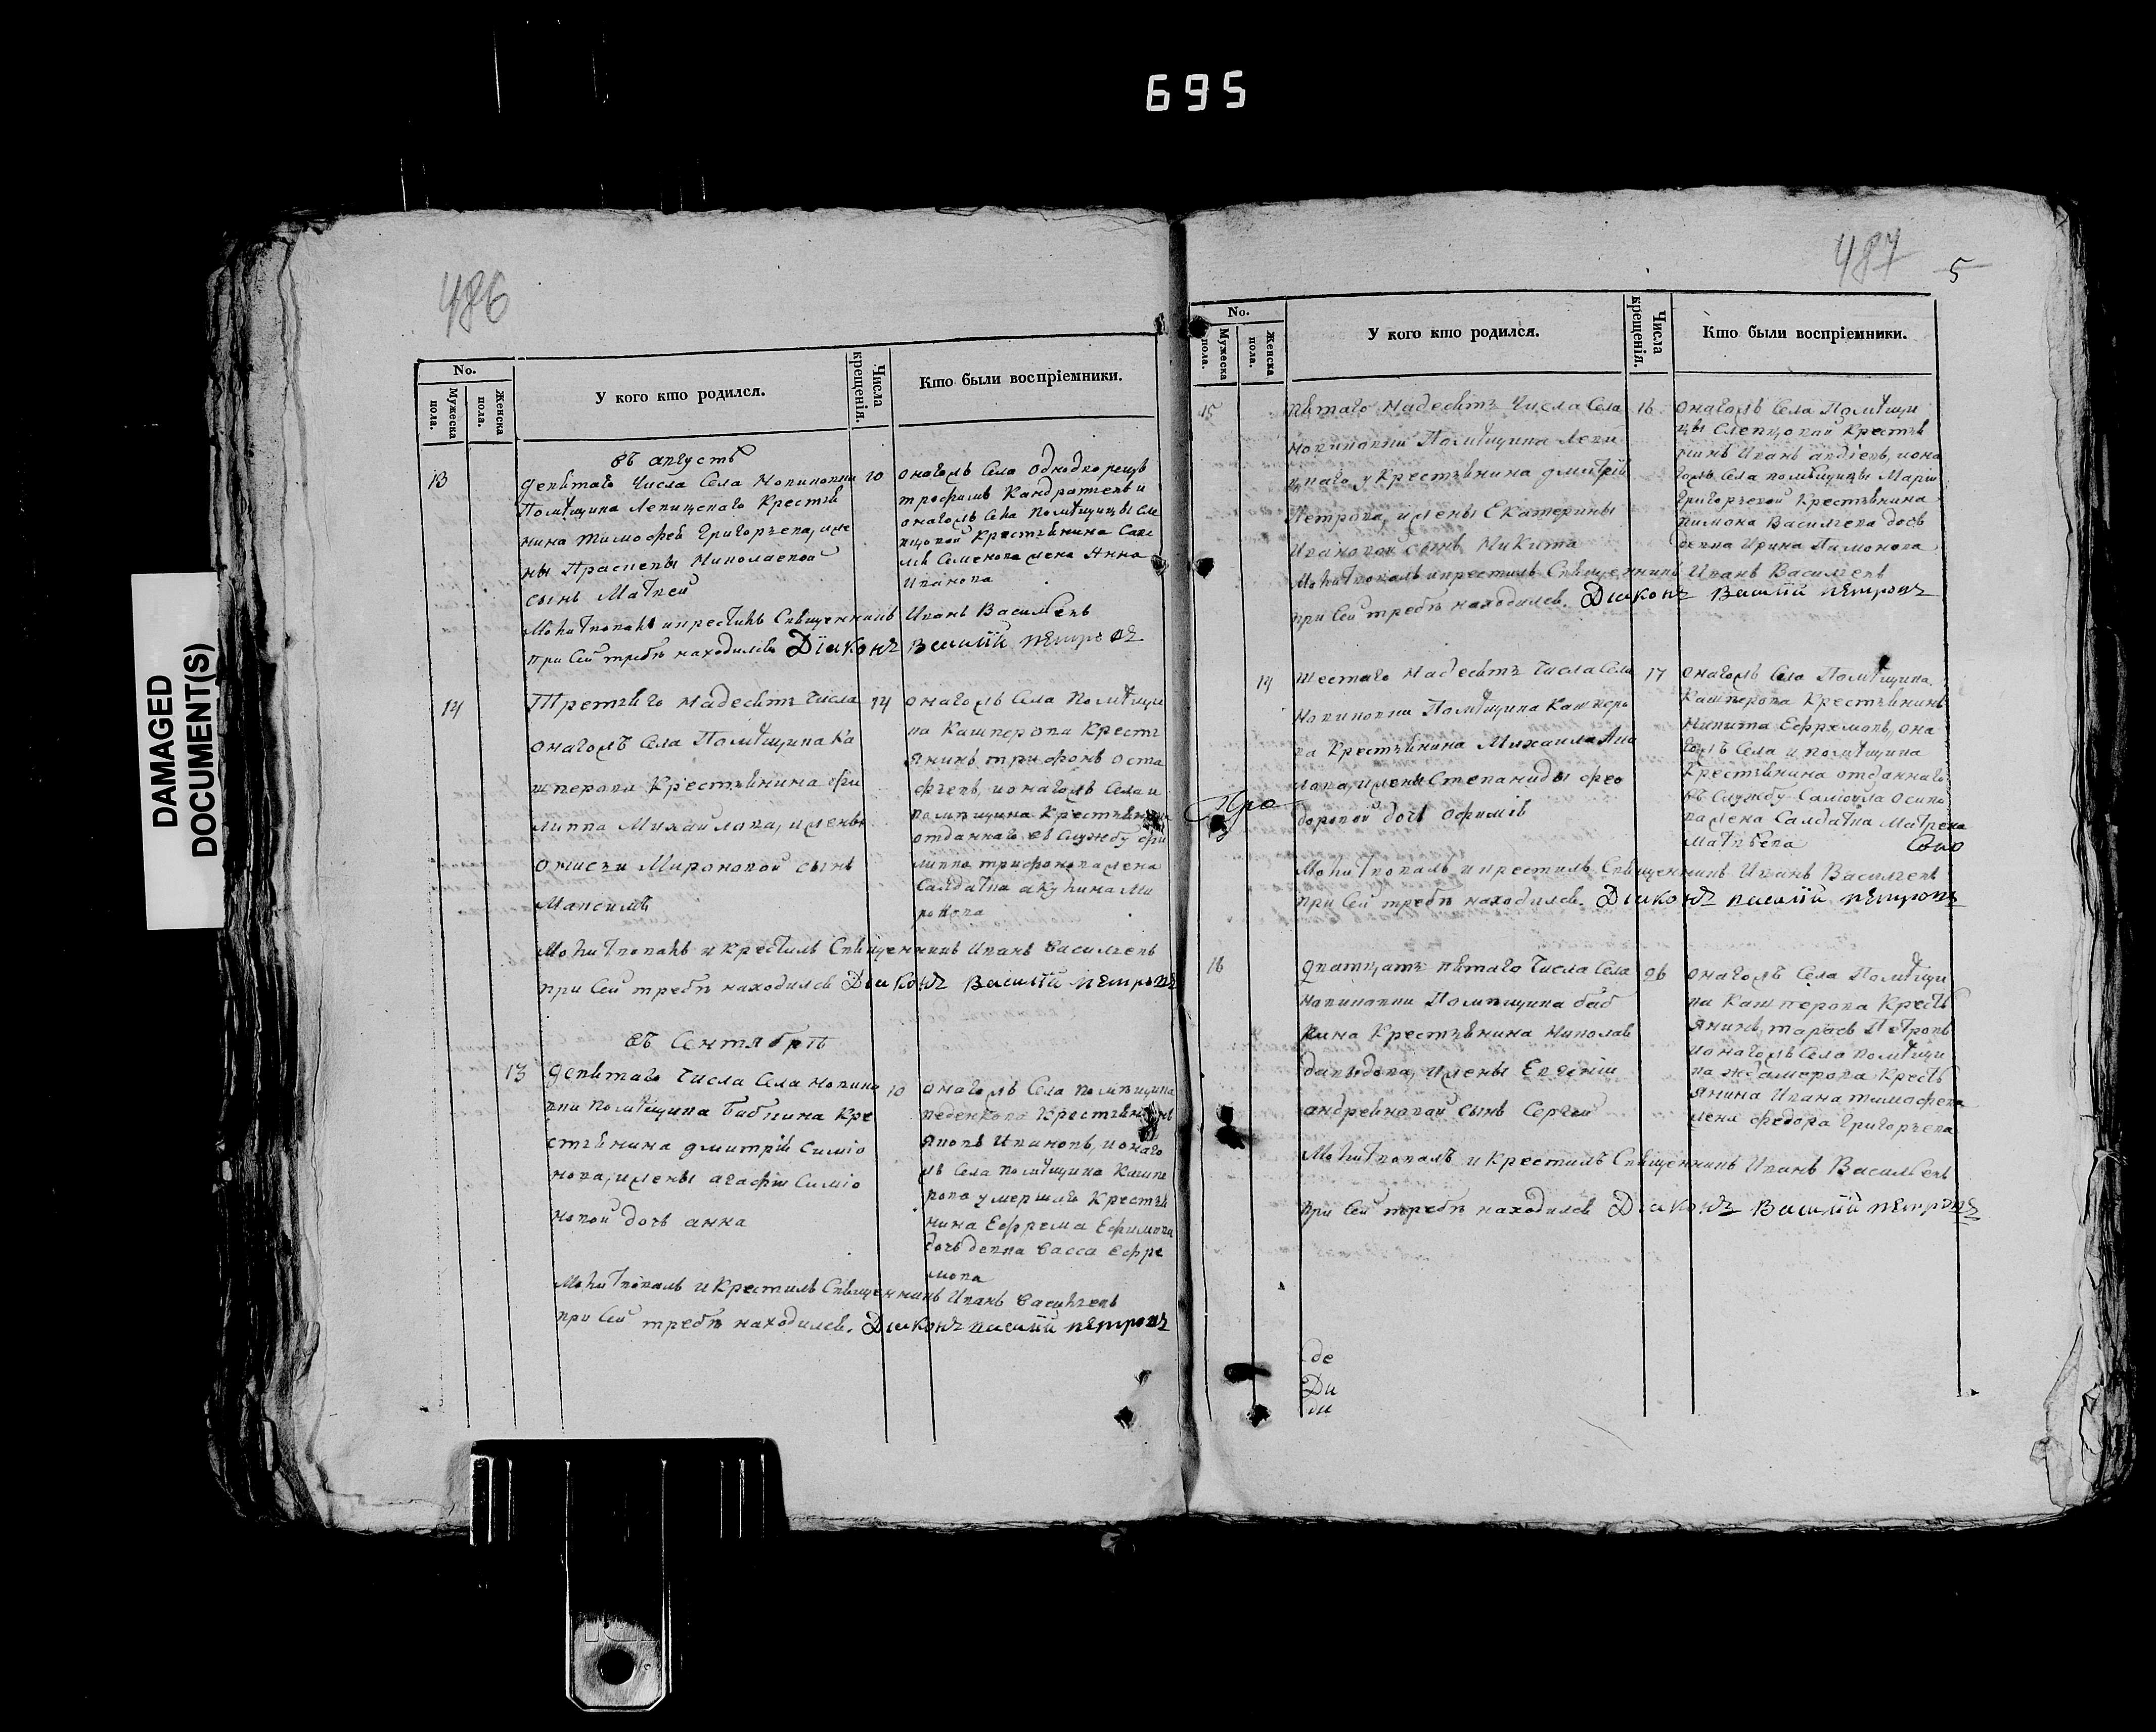 695
DAMAGED
DOCUMENT(S)
486
No.
Мужеска пола.
Женска пола.
У кого кто родился.
Числа крещенія.
Кто были воспріемники.
въ августѣ
13
девятаго Числа Села Новиковки
Помѣщика Левицкаго Крестья
нина тимофея Григорьева, и же
ны Прасковьи Николаевой
сынъ Матвей
10
онагожъ Села Однодворецъ
трофимъ Кандратьевъ и
онагожъ Села Помѣщицы Сле
пцовой Крестьянина
Семенова жена Анна
Иванова
Молитвовалъ и крестилъ Священникъ Иванъ Васильевъ
при Сей требѣ находился Діаконъ Василій Петровъ
14
Третьяго надесять Числа
онагожъ Села Помѣщика Ка
шперова Крестьянина фи
липпа Михайлова, и жены
Мироновой сынъ
Максимъ
14
онагожъ Села Помѣщи
ка Кашперова Кресть
янинъ трифонъ Оста
фьевъ, и онагожъ Села и
помѣщика Крестьянина
отданнаго въ Службу фи
липпа трифонова жена
Салдатка акулина Ми
ронова
Молитвовалъ и крестилъ Священникъ Иванъ Васильевъ
при Сей требѣ находился Діаконъ Василій Петровъ
въ Сентябрѣ
13
девятаго Числа Села Новико
вки Помѣщика Бабкина Кре
стьянина дмитрія Симіо
нова, и жены агафіи Симіо
новой дочь анна
10
онагожъ Села помѣщика
Крестьянинъ
Яковъ Ивановъ, и онаго
жъ Села Помѣщика Кашпе
рова умершаго Крестья
нина Ефрема Ефимова
дочь девка Васса Ефре
мова
Молитвовалъ и Крестилъ Священникъ Иванъ Васильевъ
при Сей требѣ находился. Діаконъ василій Петровъ
487
5
No.
Мужеска пола.
Женска пола.
У кого кто родился.
Числа крещенія.
Кто были воспріемники.
15
Пятаго Надесять Числа Села
Новиковки Помѣщика Леви
цкаго Крестьянина дмитрія
Петрова, и жены Екатерины
Ивановой сынъ Никита
16
онагожъ Села Помѣщи
цы Слепцовой Крестья
нинъ Иванъ, и она
гожъ Села помѣщицы Маріи
Григорьевой Крестьянина
Васильева дочь
девка Ирина
Молитвовалъ и крестилъ Священникъ Иванъ Васильевъ
при Сей требѣ находился. Діаконъ Василій Петровъ
14
Шестаго Надесять Числа Села
Новиковки Помѣщика Кашперо
ва Крестьянина Михаила
и жены Степаниды фео
доровой дочь Офимія
17
онагожъ Села Помѣщика
Кашперова Крестьянинъ
Никита Ефремовъ, она
гожъ Села и помѣщика
Крестьянина отданнаго
въ Службу Самойла Осипо
ва жена Салдатка Матрена
Матвѣева
Молитвовалъ и крестилъ Священникъ Иванъ Васильевъ
при Сей требѣ находился. Діаконъ василій Петровъ
16
дватцать пятаго Числа Села
Новиковки Помѣщика баб
кина Крестьянина Николая
давыдова, и жены Евгеніи
андреяновой сынъ Сергей
26
онагожъ Села Помѣщи
ка Кашперова Кресть
янинъ, Петровъ
и онагожъ Села помѣщи
ка Кресть
янина Ивана тимофева
жена федора Григорьева
Молитвовалъ и крестилъ Священникъ Иванъ Васильевъ
при Сей требѣ находился Діаконъ Василій Петровъ
де
Ди
ди